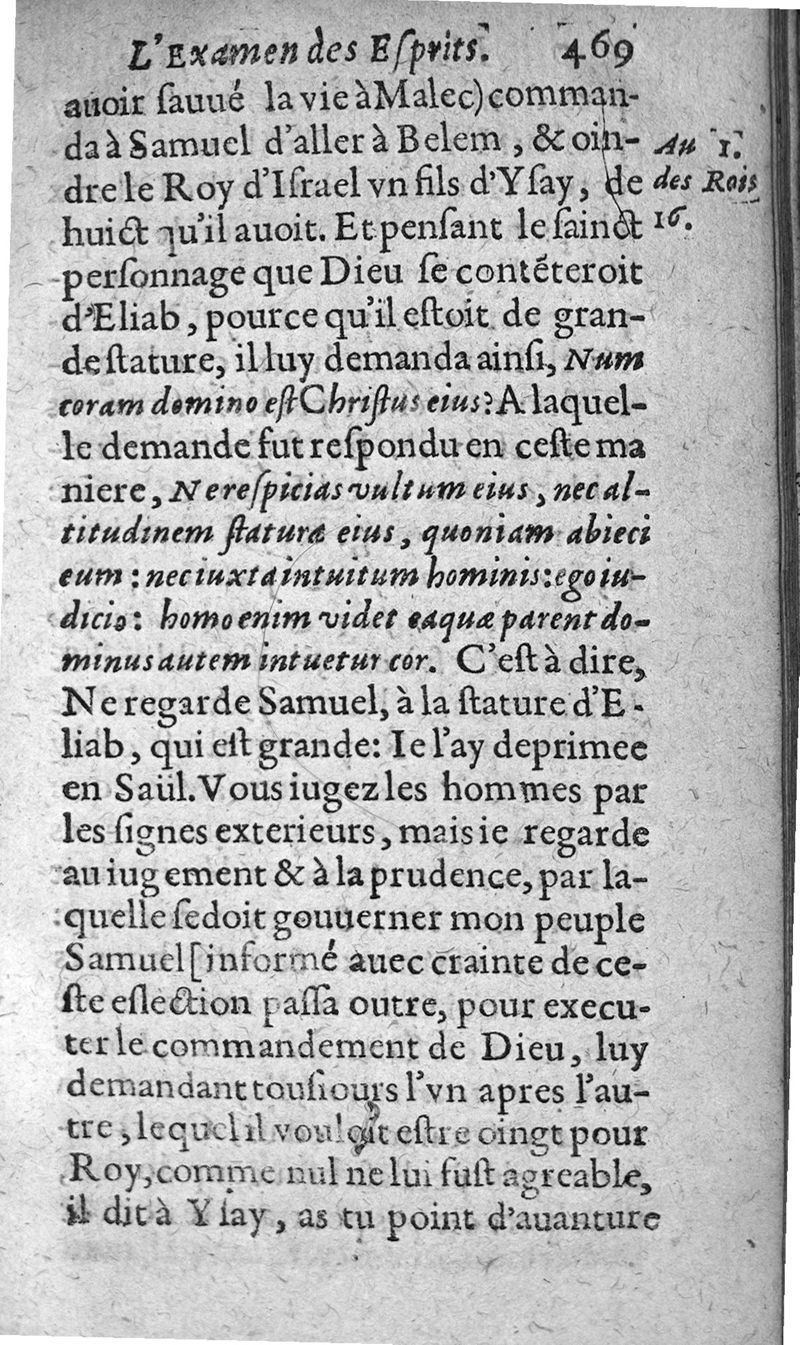 L'Examen des Eſprits. 469
auoir ſauué la vie à Malec) comman-
da à Samuel d'aller à Belem, & oin-
dre le Roy d'Iſrael vn fils d'Yſay, de
huict qu'il auoit. Et penſant le ſainct
perſonnage que Dieu ſe contẽteroit
d'Eliab, pource qu'il eſtoit de gran-
de ſtature, il luy demanda ainſi, Num
coram domino eſt Chriſtus eius? A laquel-
le demande fut reſpondu en ceſte ma
niere, Ne reſpicias vultum eius, nec al-
titudinem ſtaturæ eius, quoniam abieci
eum : nec iuxta intuitum hominis: ego iu-
dicio: homo enim videt ea quæ parent do-
minus autem intuetur cor. C'eſt à dire,
Ne regarde Samuel, à la ſtature d'E-
liab, qui eſt grande: Ie l'ay deprimee
en Saül. Vous iugez les hommes par
les ſignes exterieurs, mais ie regarde
au iugement & à la prudence, par la-
quelle ſe doit gouuerner mon peuple
Samuel [informé auec crainte de ce-
ſte eſlection paſſa outre, pour execu-
ter le commandement de Dieu, luy
demandant touſiours l'vn apres l'au-
tre, lequel il vouloit eſtre oingt pour
Roy, comme nul ne lui fuſt agreable,
il dit à Yſay, as tu point d'auanture
Au 1.
des Rois
16.